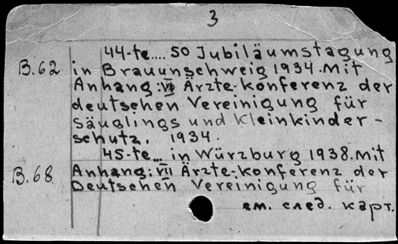 3
44-te.... 50 Jubiläumstagung
B.62 in Brauunschweig 1934. Mit
Anhang: VI Ärzte-konferenz der
deutschen Vereinigung für
Säuglings und Kleinkinder-
schutz, 1934.
45-te... in Würzburg 1938. Mit
B.68 Anhang: VII Ärzte-konferenz der
Deutschen Vereinigung für
см. след. карт.